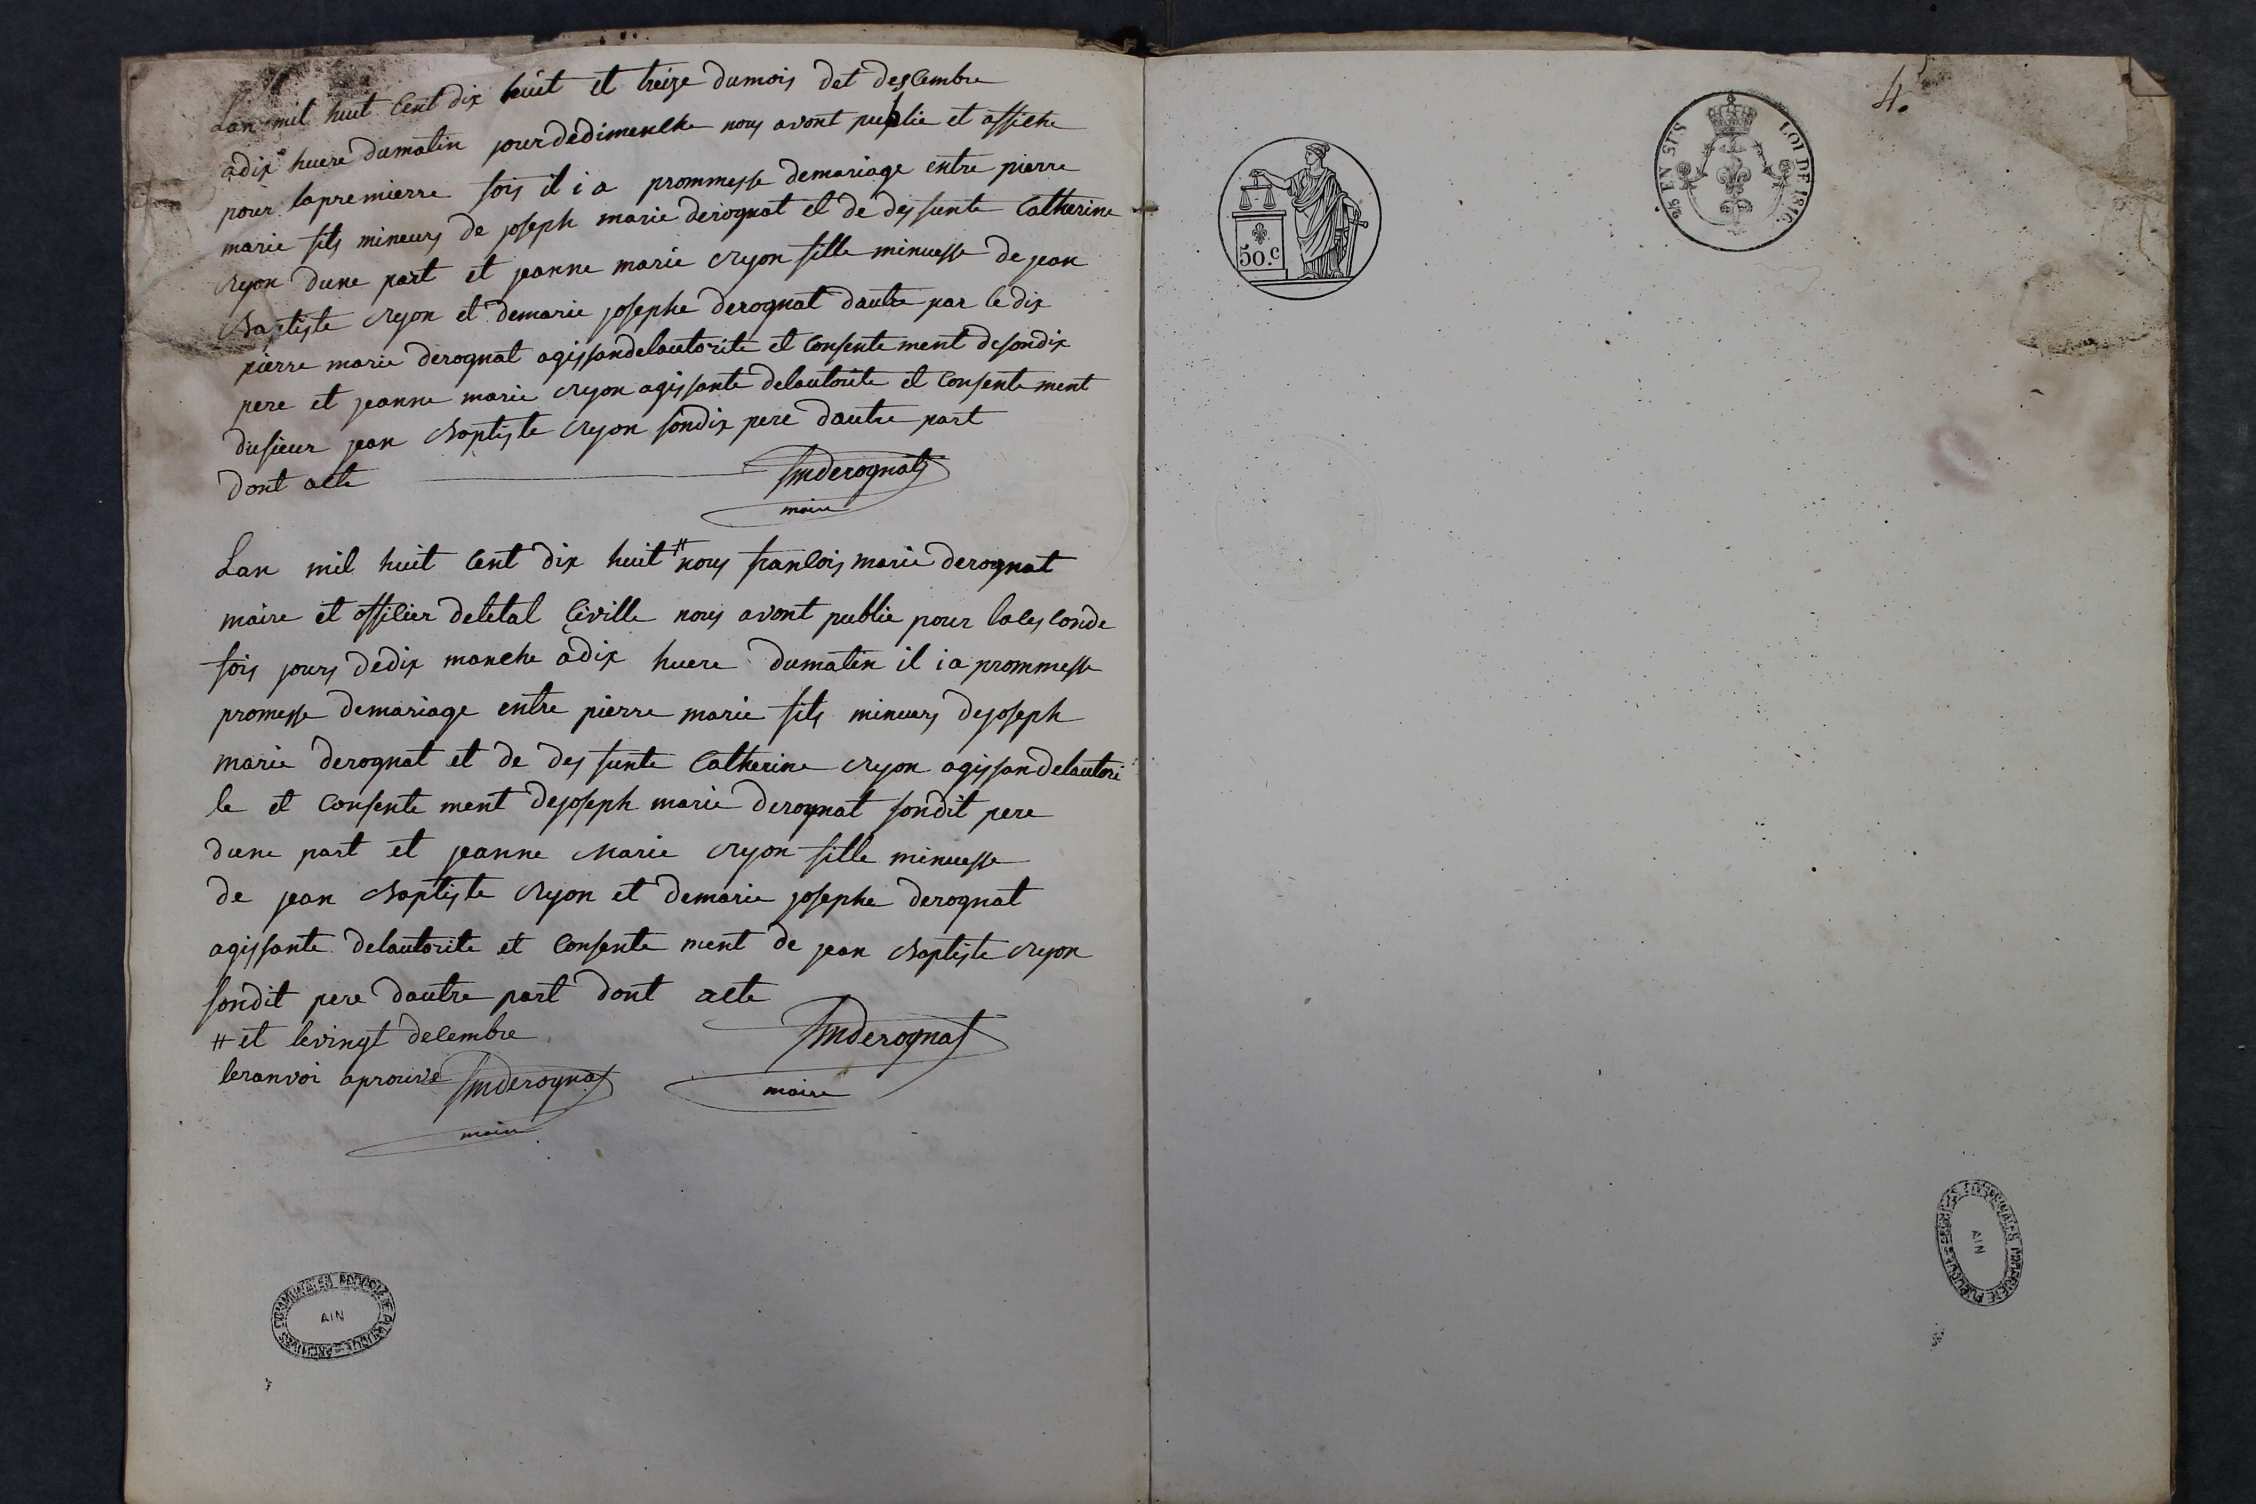 Lan mil huit Cent dix huit et treize dumois det desCembre
adix huere dumatin jourdedimenche nous avont puplie et affiche
pour lapremierre fois il i a prommesse demariage entre pierre
marie fils mineurs de joseph marie derognat et de desfunte Catherine
Reyon dune part et jeanne marie Reyon fille minuesse de jean
Baptiste Reyon et demarie josephe derognat dautre par le dix
pierre marie derognat agissandelautorite et Consentement desondix
pere et jeanne marie Reyon agissante delautorite et Consentement
dusieur jean Baptiste Reyon sondix pere dautre part
dont acte
fmderognat
maire
Lan mil huit Cent dix huit # nous francois marie derognat
maire et officier deletat Civille nous avont publie pour lasesconde
fois jours dedix manche adix huere dumatin il i a prommesse
promesse demariage entre pierre marie fils mineurs dejoseph
marie derognat et de des funte Catherine Reyon agissandelautori
te et Consente ment dejoseph marie derognat sondit pere
dune part et jeanne Marie Reyon fille minuesse
de jean Baptiste Reyon et demarie josephe derognat
agissante delautorite et Consente ment de jean Baptiste Reyon
sondit pere dautre part dont acte
# et levingt decembre
leranvoi aprouvé fmderognat
maire
fmderognat
maire
50.C
25 EN SUS
LOI DE 1816.
4.
ARCHIVES COMMUNALES PROPRIETE PUBLIQUE
AIN
ARCHIVES COMMUNALES PROPRIETE PUBLIQUE
AIN